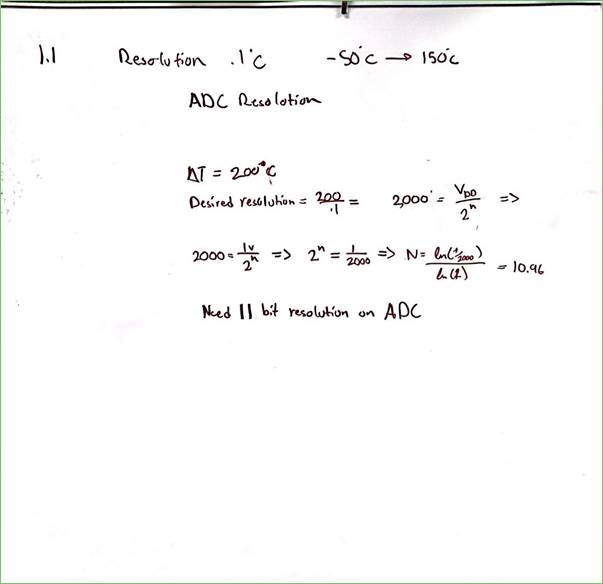 1.1 Resolution .1°C -50°C → 150°C
ADC Resolotion
ΔT = 200°C
Desired resolution = 200/.1 = 2,000 = V_DD/2^n =>
2000 = 1v/2^n => 2^n = 1/2000 => N = ln(1/2000)/ln(2) = 10.96
Need 11 bit resolution on ADC